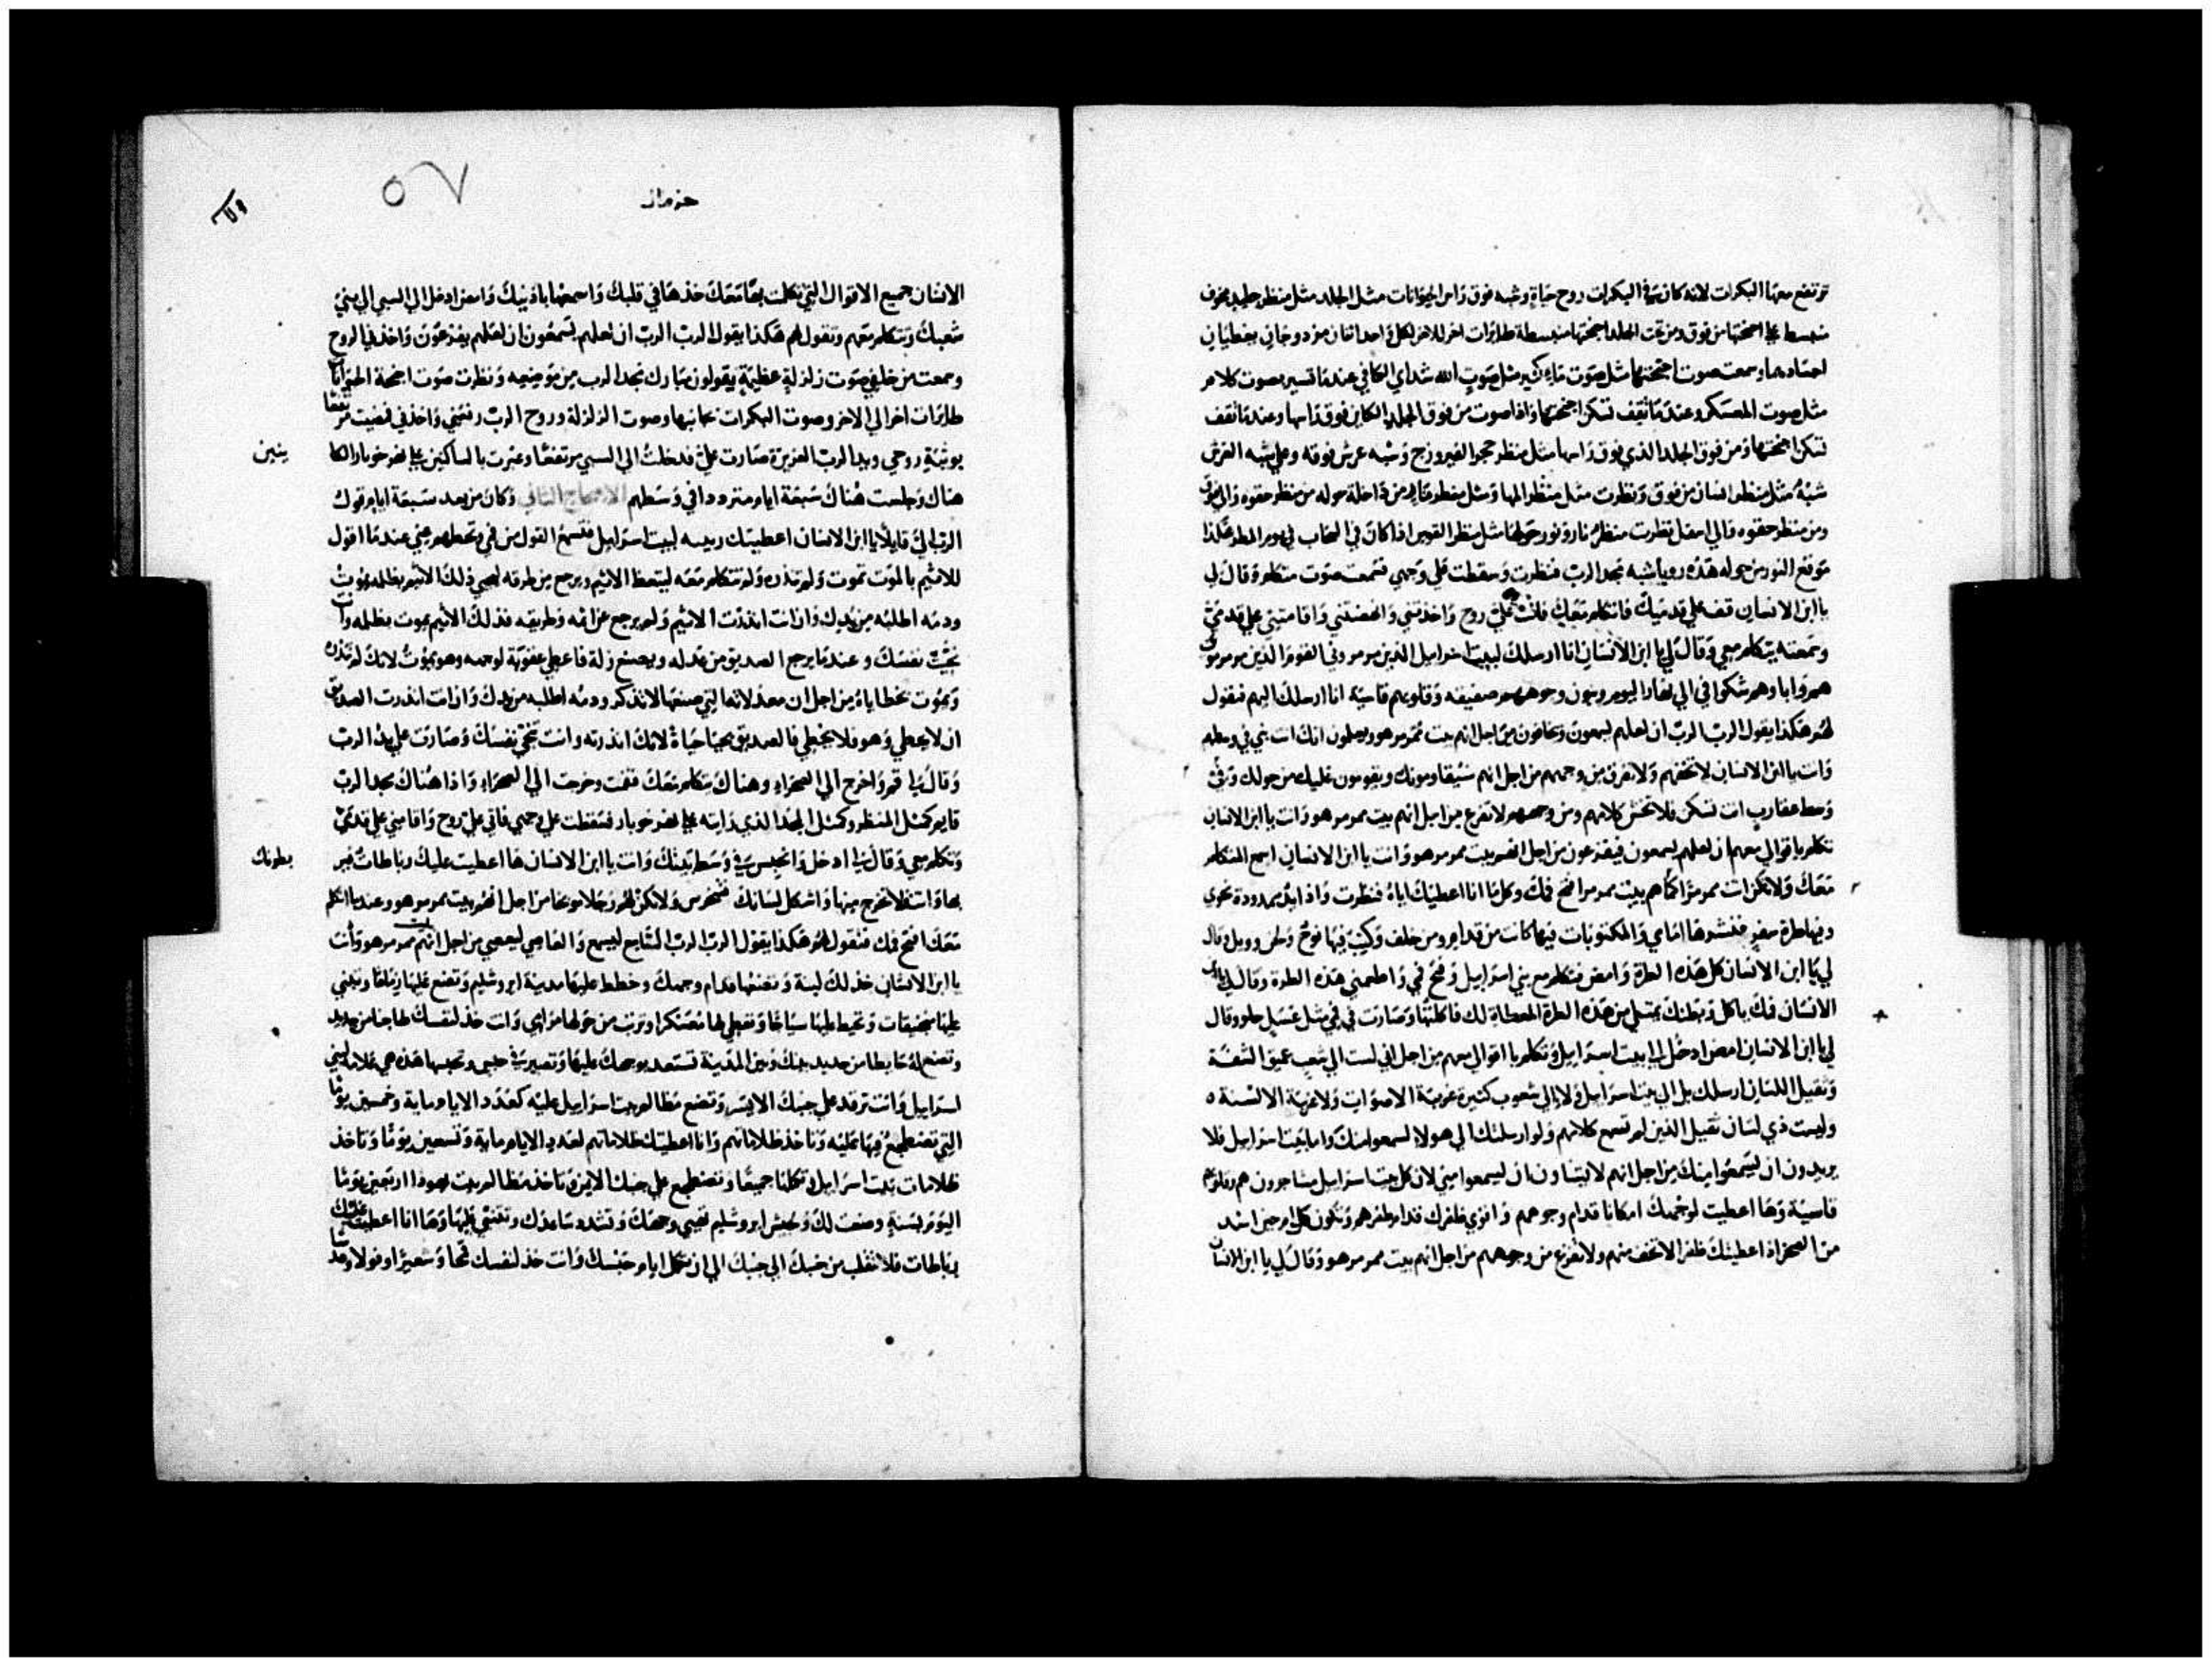 ترتفع معها البكرات لانه كان في البكرات روح حياة وشبه فوق راس الحيوانات مثل الجلد مثل منظر جليد مخوف
منبسط على اجنحتها من فوق ومن تحت الجلد اجنحتها منبسطة طايرات اخر للاخر لكل واحد اثنان مزدوجان يغطيان
اجسادهما وسمعت صوت اجنحتها مثل صوت ماء كثير مثل صوت الله شداي الكافي عندما تسير بصوت كلام
مثل صوت المعسكر وعندما تقف تسكن اجنحتها واذا صوت من فوق الجلد الكاين فوق راسها وعندما تقف
تسكن اجنحتها ومن فوق الجلد الذي فوق راسها مثل منظر حجر الفيروزج وشبه عرش فوقه وعلى شبه العرش
شبه مثل منظر انسان من فوق ونظرت مثل منظر المها ومثل منظر نار من داخله حوله من منظر حقوه والى فوق
ومن منظر حقوه والى اسفل نظرت منظر نار ونور حولها مثل منظر القوس اذا كان في السحاب في يوم المطر هكذا
موقع النور من حوله هذه رويا شبه مجد الرب فنظرت وسقطت على وجهي فسمعت صوت متكلم وقال لي
يا ابن الانسان قف على قدميك فاتكلم معك فاتت علي روح واخذتني وانهضتني واقامتني على قدمي
وسمعته يتكلم معي وقال لي يا ابن الانسان انا ارسلك لبيت اسراييل الذين مرمروني القوم الذين مرمروني
هم واباوهم شكوا في الى نهار اليوم وبنون وجوههم صفيقه وقلوبهم قاسية انا ارسلك اليهم فتقول
لهم هكذا يقول الرب الرب ان لعلهم يسمعون ويخافون من اجل انهم بيت ممرمر هو ويعلمون انك انت نبي في وسطهم
وانت يا ابن الانسان لا تخفهم ولا تفرق من وجههم من اجل انهم سيقاومونك ويقومون عليك من حولك وفي
وسط عقارب انت تسكن فلا تخش كلامهم ومن وجههم لا تفزع من اجل انهم بيت ممرمر هو وانت يا ابن الانسان
تكلم باقوالي معهم ان لعلهم يسمعون فيفزعون من اجل انهم بيت ممرمر هو وانت يا ابن الانسان اسمع المتكلم
معك ولا تكن انت ممرمرا كما هم بيت ممرمر افتح فمك وكل ما انا اعطيتك اياه فنظرت واذا يد ممدودة نحوي
وفيها طرة سفر فنشرها امامي والمكتوبات فيها كانت من قدام ومن خلف وكتب فيها نوح ولحن وويل وقال
لي يا ابن الانسان كل هذه الطرة وامض فتكلم مع بني اسراييل وفتح فمي واطعمني هذه الطرة وقال لي يا ابن
الانسان فمك ياكل وبطنك يمتلي من هذه الطرة المعطاة لك فاكلتها وصارت في فمي مثل عسل حلو وقال
لي يا ابن الانسان امض ادخل الى بيت اسراييل وتكلم باقوالي معهم من اجل اني لست الى شعب عميق الشفة
وثقيل اللسان ارسلك بل الى بيت اسراييل ولا الى شعوب كثيرة غريبة الاصوات ولا غريبة الالسنة
وليست ذي لسان ثقيل الذين لم تسمع كلامهم ولو ارسلتك الى هولاء لسمعوا منك واما بيت اسراييل فلا
يريدون ان يسمعوا منك من اجل انهم لا يشاون ان يسمعوا مني لان كل بيت اسراييل مشاجرون هم وقلوبهم
قاسية وها اعطيت لوجهك امكانا قدام وجوههم واقوي ظفرك قدام ظفرهم وتكون كل حين اشد
من الصخر اذ اعطيتك ظفرا لا تخف منهم ولا تفزع من وجوههم من اجل انهم بيت ممرمر هو وقال لي يا ابن الانسان
٥٧
الانسان جميع الاقوال التي تكلمت بها معك خذها في قلبك واسمعها باذنيك وامض ادخل الى السبي الى بني
شعبك وتتكلم معهم وتقول لهم هكذا يقول الرب الرب ان لعلهم يسمعون ان لعلهم يفزعون واخذني الروح
وسمعت من خلفي صوت زلزلة عظيمة يقولون مبارك مجد الرب من موضعه ونظرت صوت اجنحة الحيوانات
طايرات اخر الى الاخر وصوت البكرات بجانبها وصوت الزلزلة وروح الرب رفعتني واخذني فمضيت مرتفعا
بوثبة روحي ويد الرب العزيزة صارت علي فدخلت الى السبي مرتفعا وعبرت بالساكنين على نهر خوبار الكا
ينين
هناك وجلست هناك سبعة ايام مترددا في وسطهم الاصحاح الثاني وكان من بعد سبعة ايام قول
الرب الي قايلا يا ابن الانسان اعطيتك ربيبه لبيت اسراييل فتسمع القول من فمي وتعطهم مني عندما اقول
للاثيم بالموت تموت ولم تنذره ولم تتكلم معه ليتعظ الاثيم ويرجع من طرقه ليحيى ذلك الاثيم بظلمه يموت
ودمه اطلبه من يدك وان انت انذرت الاثيم ولم يرجع عن اثمه وطريقه فذلك الاثيم يموت بظلمه وانت
نجيت نفسك وعندما يرجع الصديق من عدله ويصنع زلة فاعطي عقوبة لوجهه وهو يموت لانك لم تنذره
ويموت بخطاياه من اجل ان معدلاته التي صنعها لا تذكر ودمه اطلبه من يدك وان انت انذرت الصديق
ان لا يخطي وهو فلا يخطي فالصديق يحيا حياة لانك انذرته وانت تنجي نفسك وصارت علي يد الرب
وقال لي قم واخرج الى الصحراء وهناك يتكلم معك فقمت وخرجت الى الصحراء واذا هناك مجد الرب
قايم كمثل المنظر وكمثل المجد الذي رايته على نهر خوبار فسقطت على وجهي فاتى علي روح واقامني على قدمي
وتكلم معي وقال لي ادخل وانحبس في وسط بيتك وانت يا ابن الانسان ها اعطيت عليك رباطات فير
بطونك
بها وانت فلا تخرج منها واشكل لسانك فتخرس ولا تكن لهم رجلا موبخا من اجل انهم بيت ممرمر هو وعندما اتكلم
معك افتح فمك فتقول لهم هكذا يقول الرب الرب السامع ليسمع والعاصي ليعصي من اجل انهم بيت ممرمر هو وانت
يا ابن الانسان خذ لك لبنة وتضعها قدام وجهك وخطط عليها مدينة ايروشليم وتصنع عليها زلقا وتبني
عليها منجنيقات وتحيط عليها سياجا وتجعل لها معسكرا وترتب من حولها مراي وانت خذ لنفسك طاجنا من حديد
وتصنع له حايطا من حديد بينك وبين المدينة تستعد بوجهك عليها وتصير في حبس وتحبسها هذه هي علامة لبني
اسراييل وانت ترقد على جنبك الايسر وتضع مظالم بيت اسراييل عليه كعدد الايام ماية وخمسين يوما
التي تضطجع فيها عليه وتاخذ ظلاماتهم وانا اعطيتك ظلاماتهم لعدد الايام ماية وتسعين يوما وتاخذ
ظلامات بيت اسراييل وتكملها جميعا وتضطجع على جنبك الايمن وتاخذ مظالم بيت يهوذا اربعين يوما
اليوم بسنة وضعت لك ولحبس ايروشليم تهيي وجهك وتشدد ساعدك وتتنبى عليها وها انا اعطيت عليك
رباطات فلا تنقلب من جنبك الى جنبك الى ان تكمل ايام حبسك وانت خذ لنفسك قمحا وشعيرا وفولا وعدسا